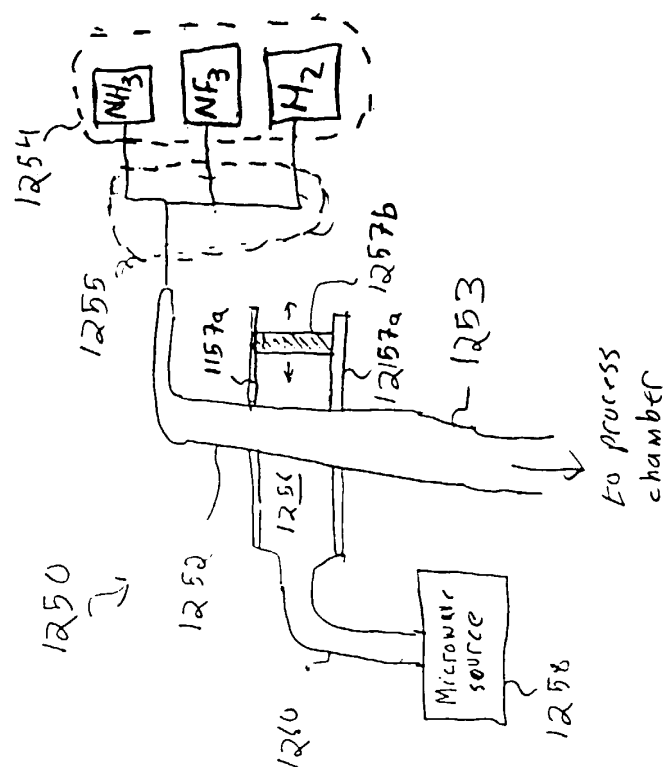 1250
1254
NH3
NF3
H2
1255
1252
1157a
1257b
1256
12157a
1253
1260
Microwave
source
1258
to process
chamber